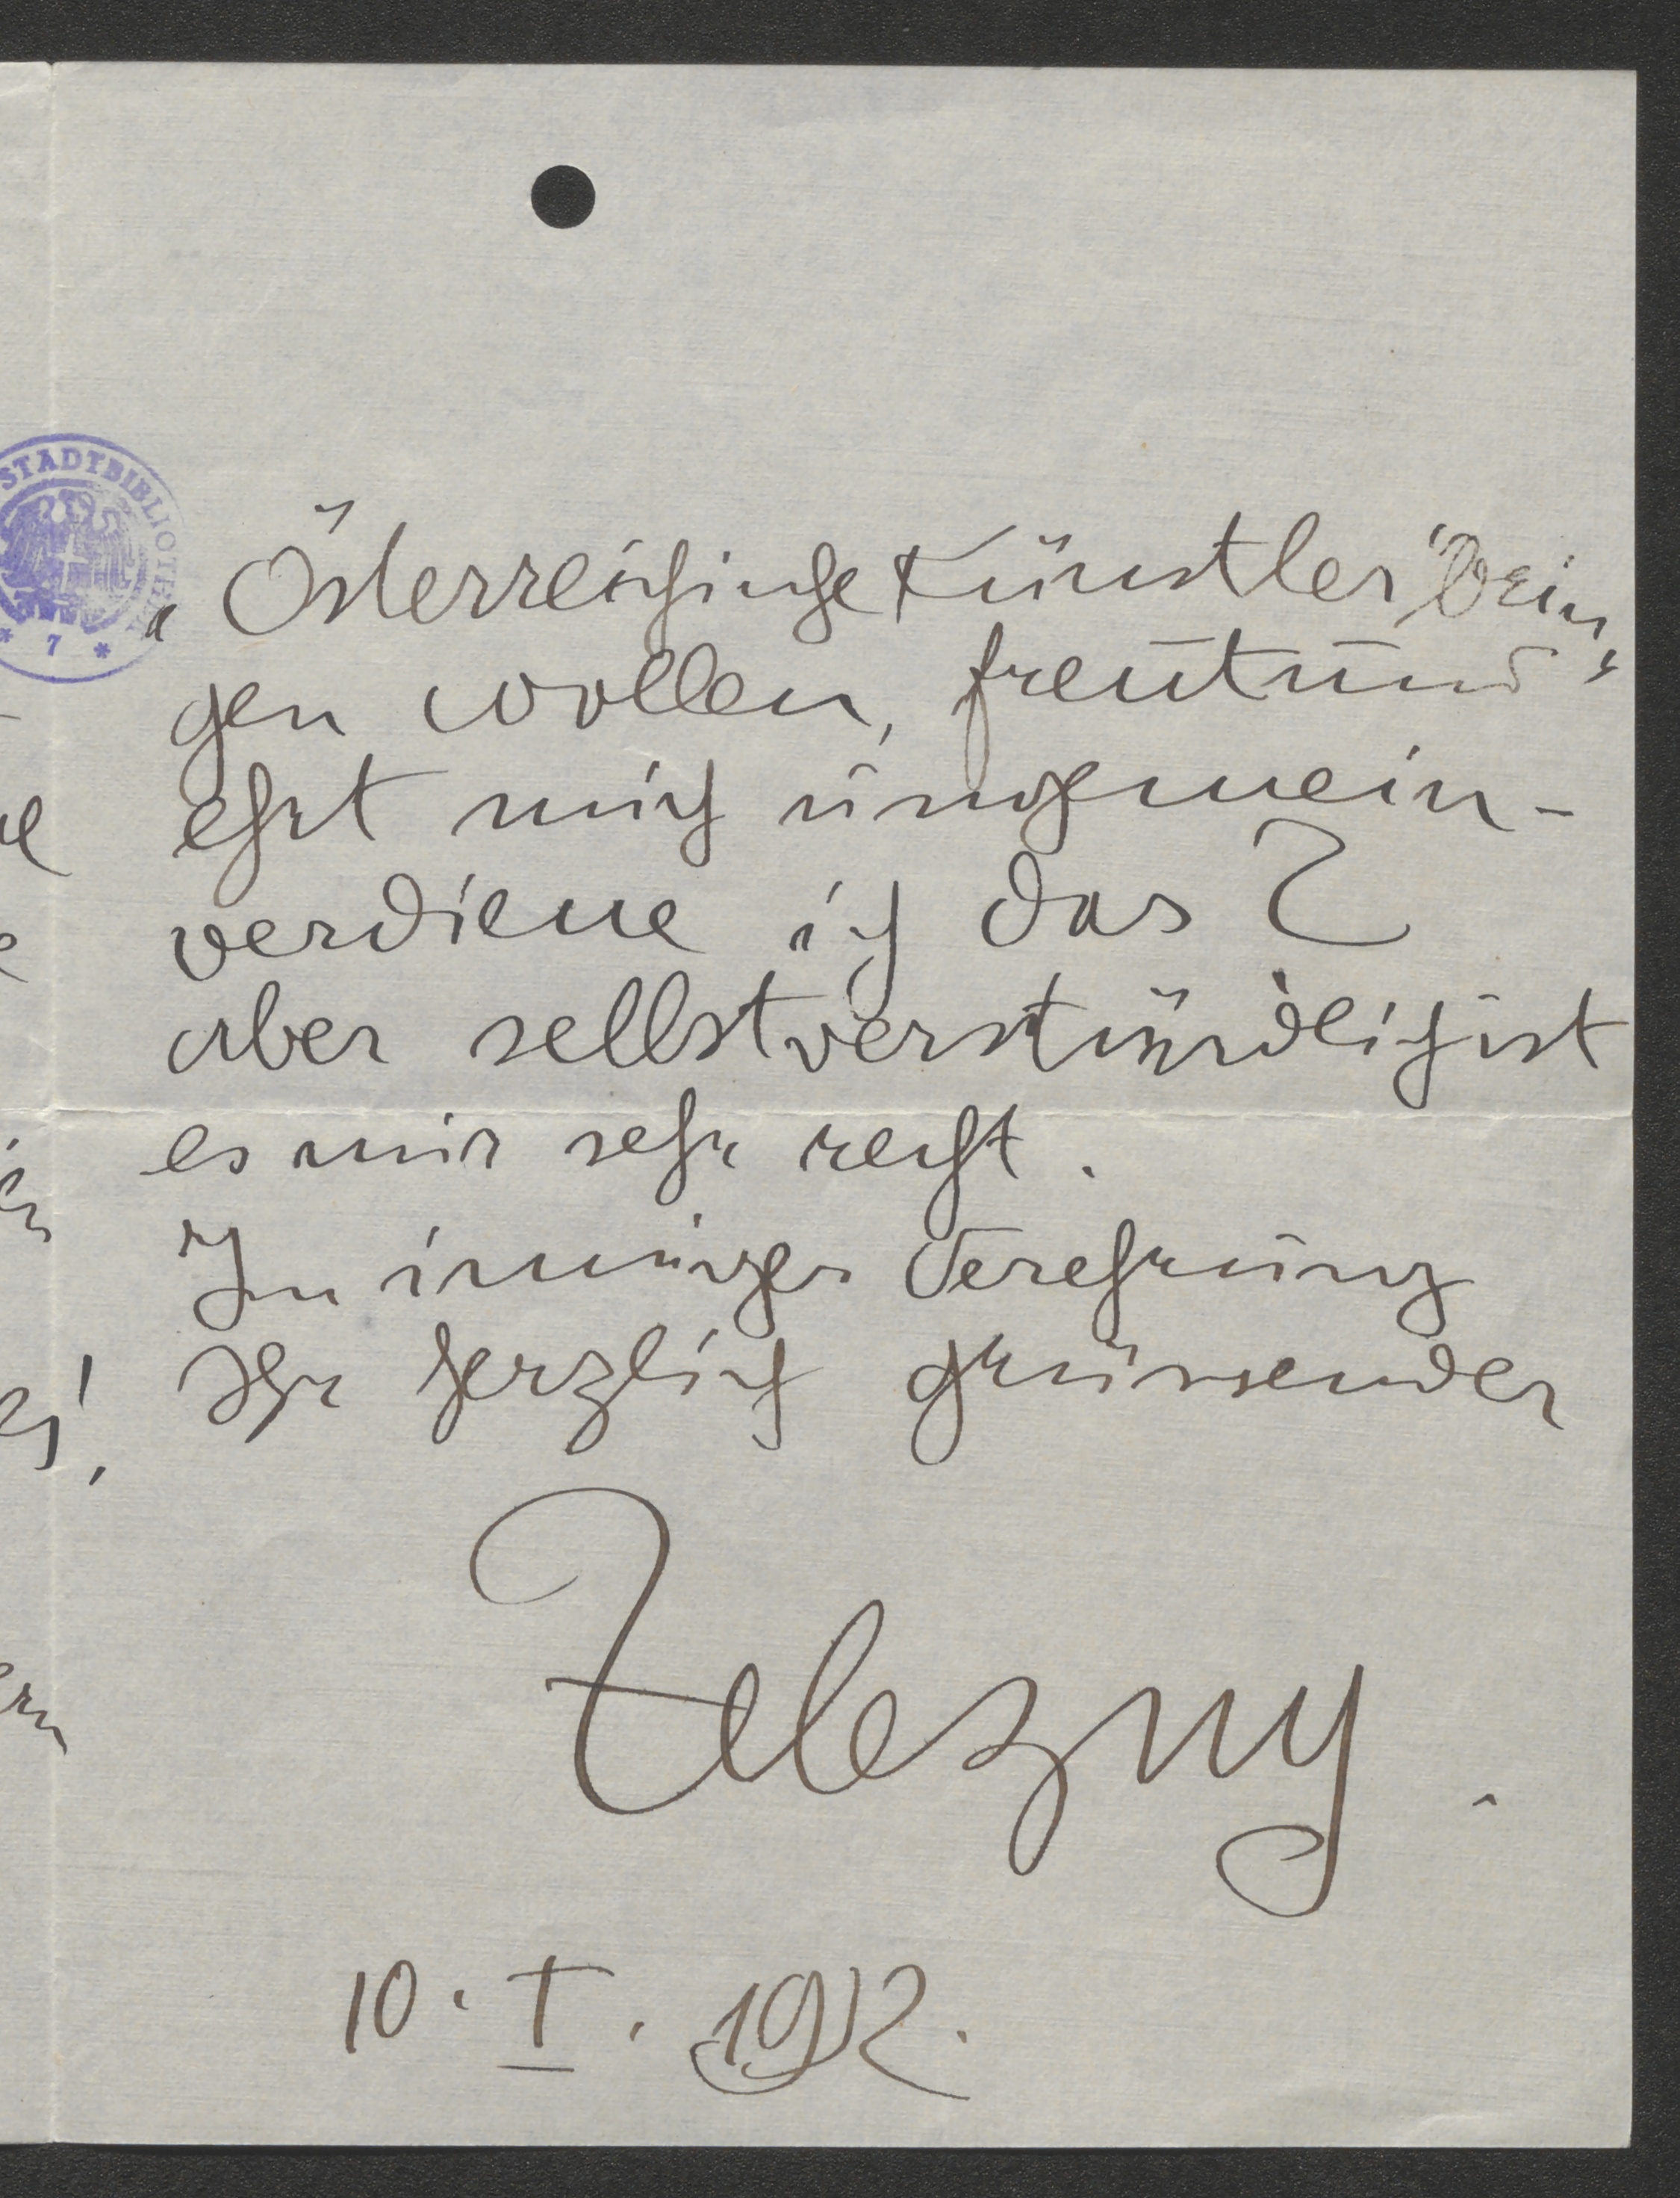 STADTBIBLIOTHEK
* 7 *
„Österreichische Künstler" brin-
gen wollen, freut und
ehrt mich ungemein -
verdiene ich das?
aber selbstverständlich ist
es mir sehr recht.
In inniger Verehrung
Ihr herzlich grüssender
Zelezny.
10. I. 1912.